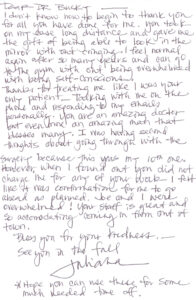 Dear DR Buck,
I don't know how to begin to thank you
for all you have done for me. You took
on my case long distance and gave me
the gift of being able to look in the
mirror with out cringing. I feel normal
again after so many years and can go
to the gym with out being overwhelmed
with being self conscious.
Thanks for treating me like I was your
only patient. Talking with me on the
phone and responding to my emails
personally. You are an amazing doctor
but even more an amazing man that
blesses many. I was having second
thoughts about going through with the
surgery because this was my 10th one
However when I found out you did not
charge me for any of your work. I felt
like it was confirmation for me to go
ahead as planned. Joe and I were
overwhelmed! Your staff is great and
so accommodating coming in from out of
town.
Bless you for your kindness
See you in the fall
Juliana
* Hope you can use these for some
much needed time off.